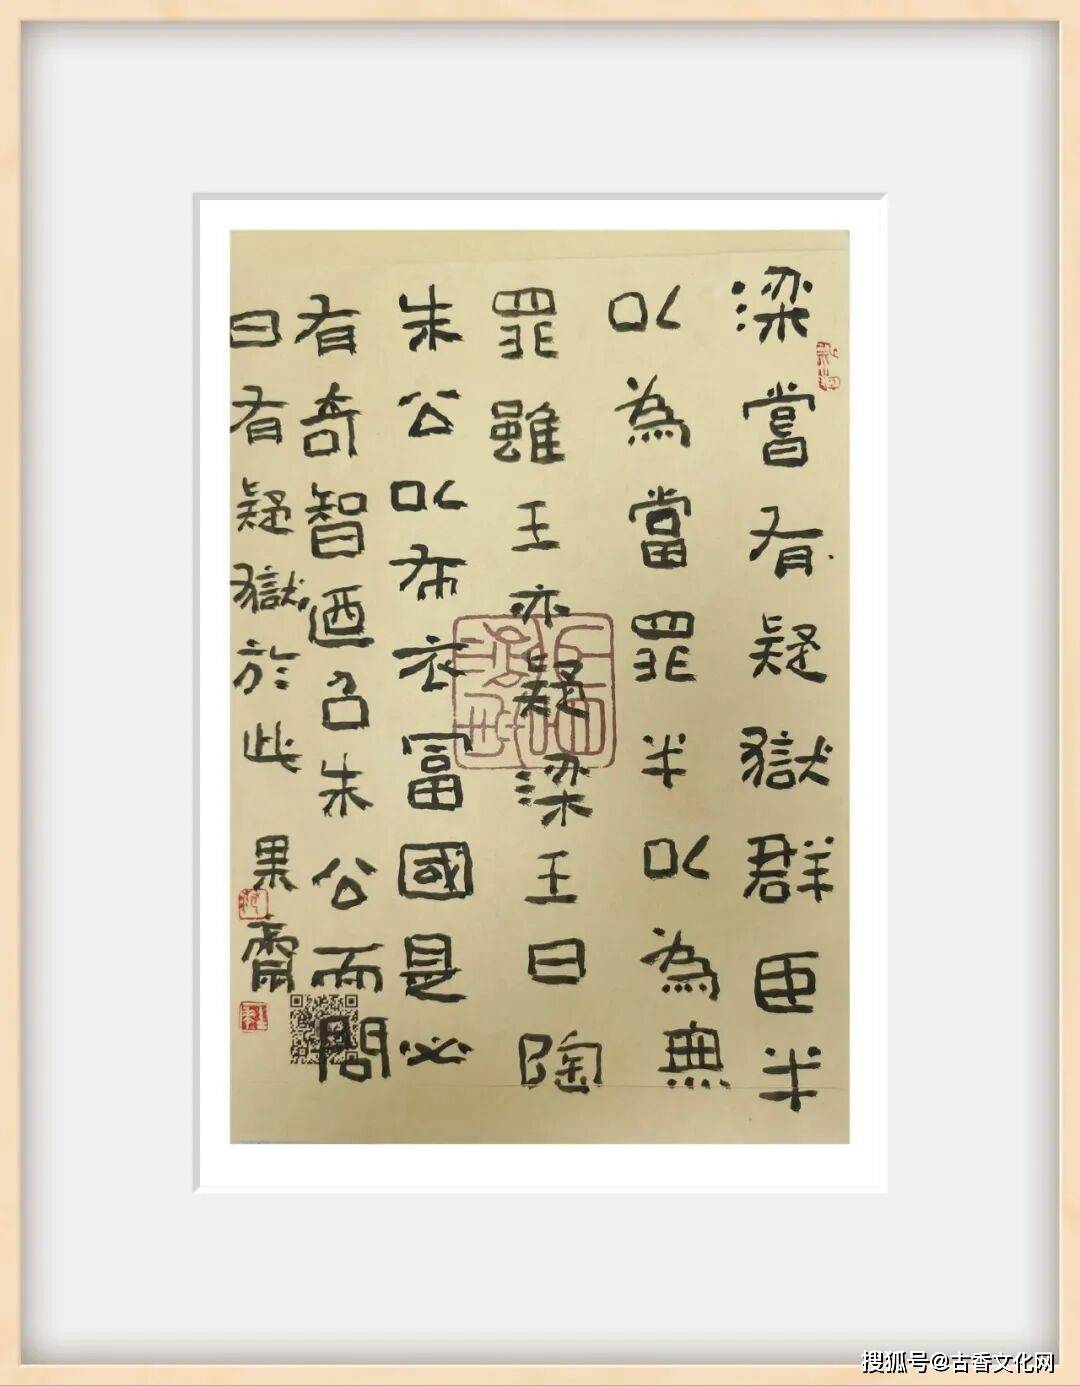 梁嘗有疑獄群臣半
以為當罪半以為無
罪雖王亦疑梁王曰陶
朱公以布衣冨國是必
有奇智迺召朱公而問
曰有疑獄於此
果齋
搜狐号@古香文化网